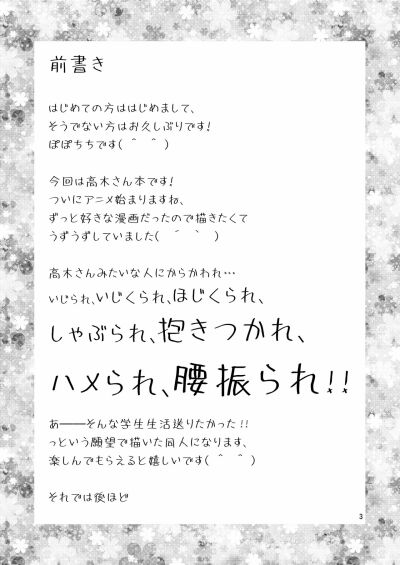 前書き
はじめての方ははじめまして、
そうでない方はお久しぶりです!
ぽぽちちです( ＾ ＾ )
今回は高木さん本です!
ついにアニメ始まりますね、
ずっと好きな漫画だったので描きたくて
うずうずしていました( ´ ｀ )
高木さんみたいな人にからかわれ…
いじられ、いじくられ、ほじくられ、
しゃぶられ、抱きつかれ、
ハメられ、腰振られ!!
あ━━そんな学生生活送りたかった!!
っという願望で描いた同人になります、
楽しんでもらえると嬉しいです( ＾ ＾ )
それでは後ほど
3